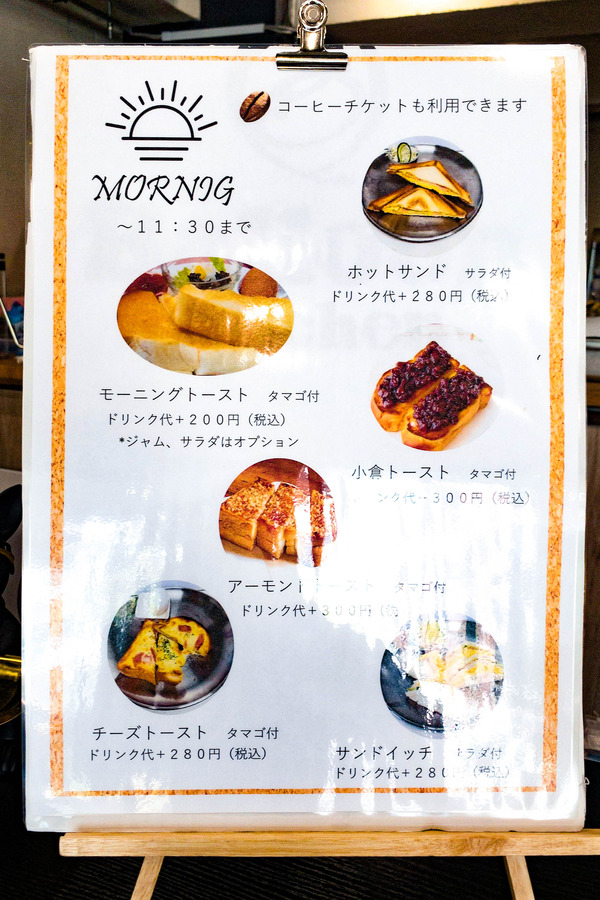 コーヒーチケットも利用できます
MORNIG
～１１：３０まで
ホットサンド サラダ付
ドリンク代＋２８０円（税込）
モーニングトースト タマゴ付
ドリンク代＋２００円（税込）
*ジャム、サラダはオプション
小倉トースト タマゴ付
ンク代＋３００円（税込）
アーモンドトースト タマゴ付
ドリンク代＋３００円
チーズトースト タマゴ付
ドリンク代＋２８０円（税込）
サンドイッチ サラダ付
ドリンク代＋２８０円（税込）